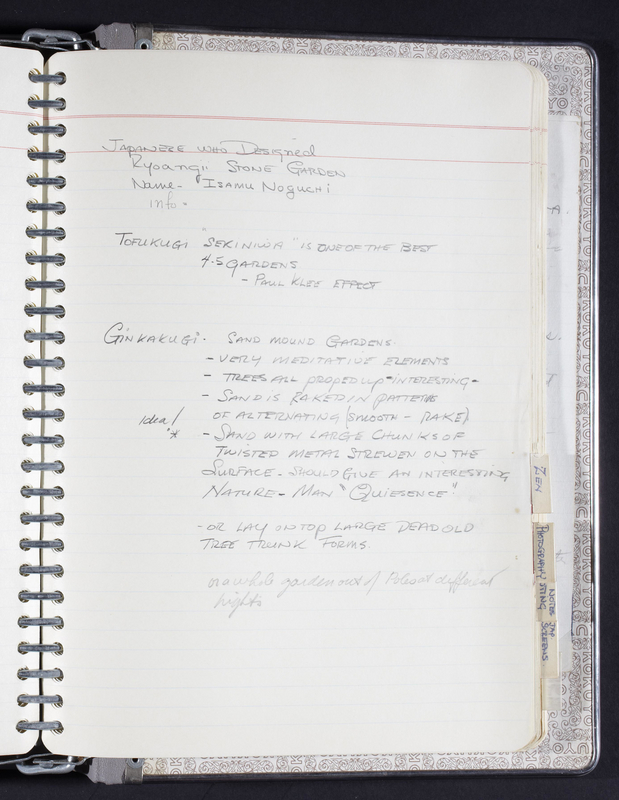 JAPANESE WHO DESIGNED
Ryoangi STONE GARDEN
Name - ISAMU NOGUCHI
info -
TOFUKUGI "SEKINIWA" IS ONE OF THE BEST
4-5 GARDENS
- PAUL KLEE EFFECT
GINKAKUGI - SAND MOUND GARDENS.
- VERY MEDITATIVE ELEMENTS
- TREES ALL PROPED UP - INTERESTING -
- SAND IS RAKED IN PATTERNS
OF ALTERNATING (SMOOTH - RAKE)
idea!
* - SAND WITH LARGE CHUNKS OF
TWISTED METAL STREWEN ON THE
SURFACE - SHOULD GIVE AN INTERESTING
NATURE - MAN "QUIESENCE"
- OR LAY ON TOP LARGE DEAD OLD
TREE TRUNK FORMS.
or a whole garden out of Poles at different
hights
ZEN
PHOTOGRAPHY STING
NOTES JAP SCREENS